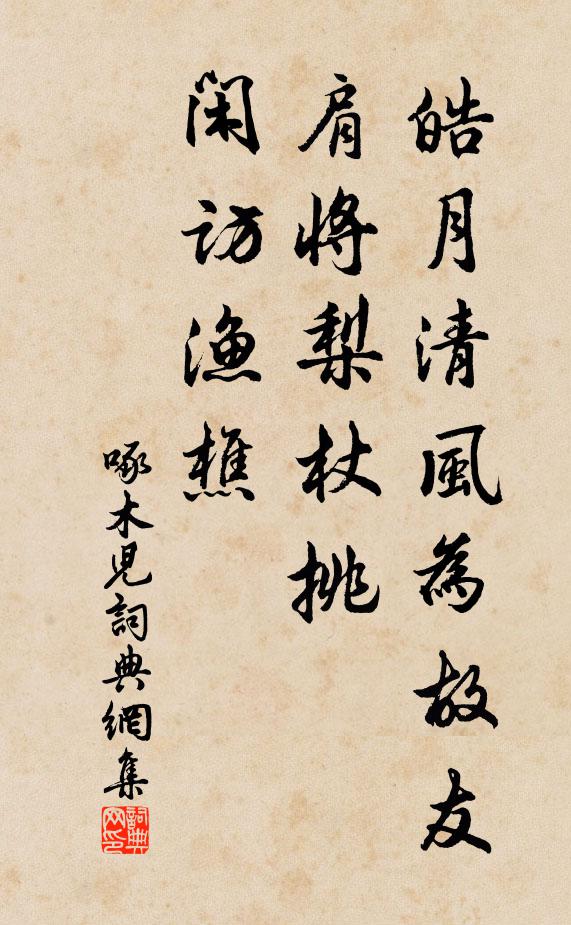 皓月清風為故友
肩將梨杖挑
閑訪漁樵
啄木児詞典網集
詞典網印